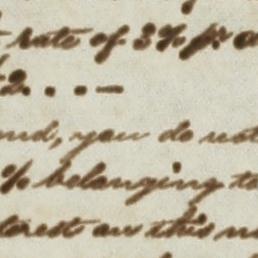 rate of 3% pr a
2. . . . —
and, you do not
% belonging to
terest on this m